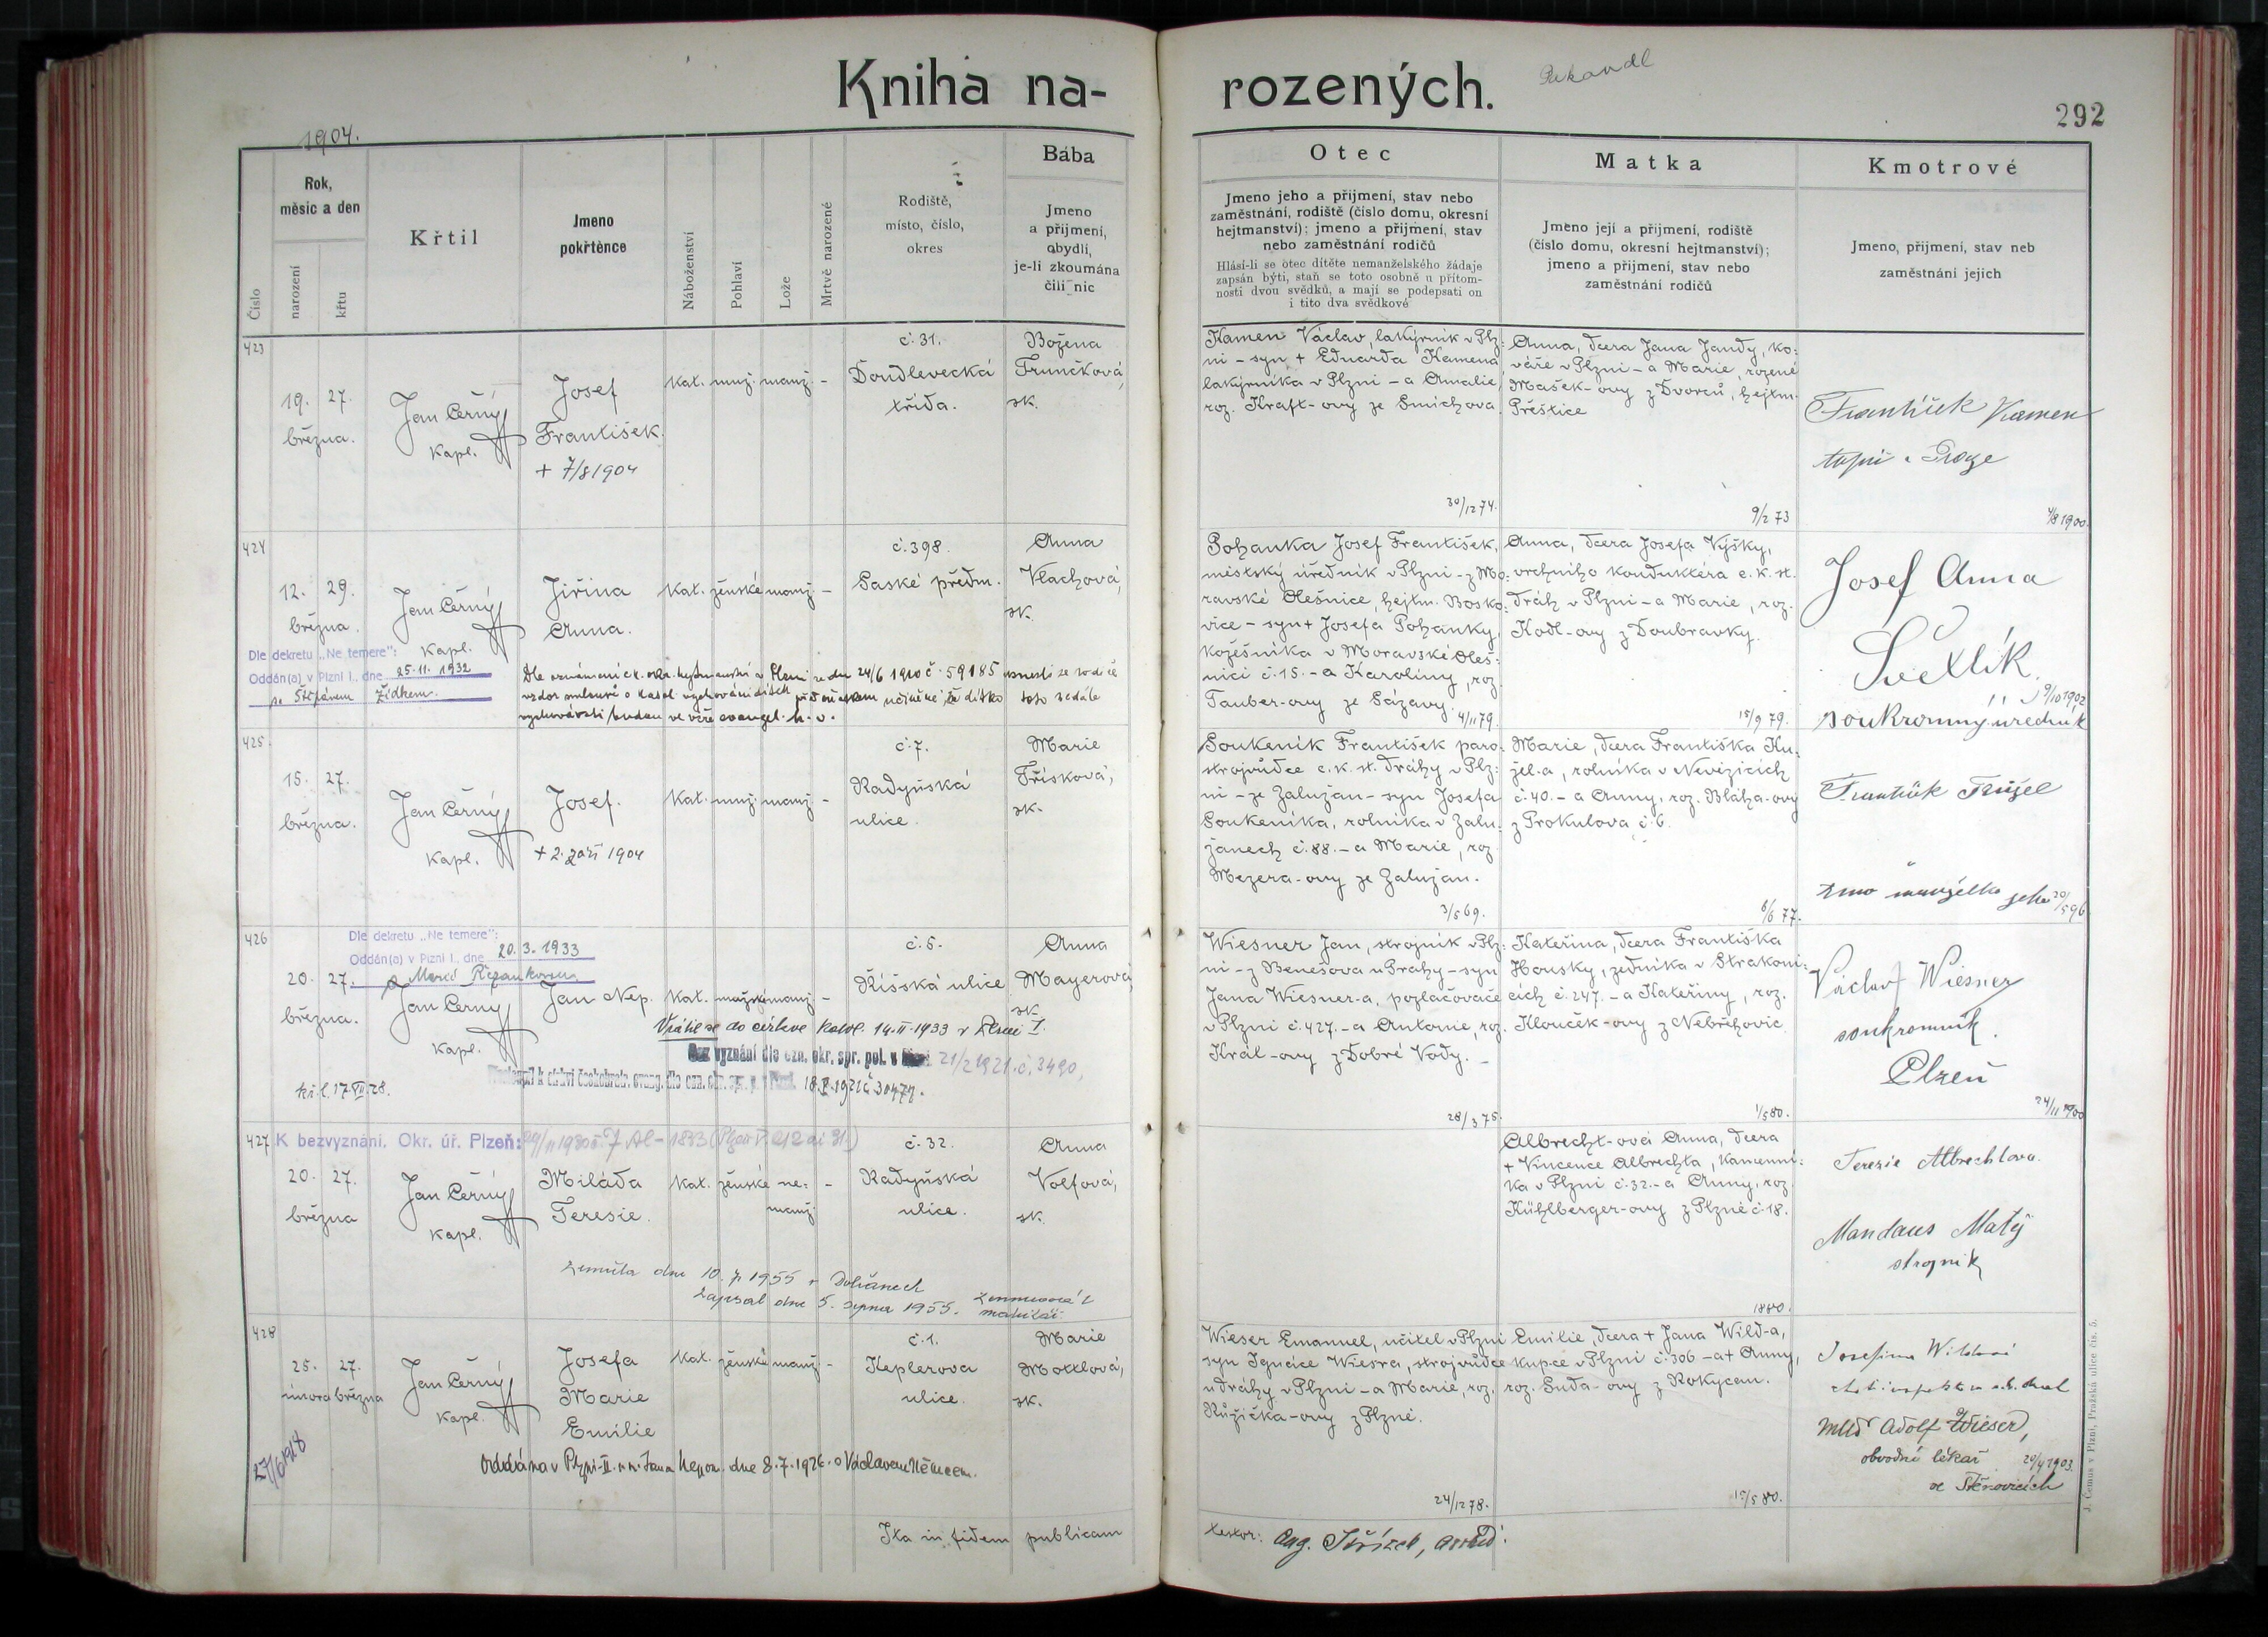 Kniha na-
rozených.
292
1904.
Číslo
Rok,
měsíc a den
narození
křtu
Křtil
Jmeno
pokřtěnce
Náboženství
Pohlaví
Lože
Mrtvě narozené
Rodiště,
místo, číslo,
okres
Bába
Jmeno
a příjmení,
obydlí,
je-li zkoumána
čili nic
Otec
Jmeno jeho a příjmení, stav nebo
zaměstnání, rodiště (číslo domu, okresní
hejtmanství); jmeno a příjmení, stav
nebo zaměstnání rodičů
Hlásí-li se otec dítěte nemanželského žádaje
zapsán býti, staň se toto osobně u přítom-
nosti dvou svědků, a mají se podepsati on
i tito dva svědkové
Matka
Jmeno její a příjmení, rodiště
(číslo domu, okresní hejtmanství);
jmeno a příjmení, stav nebo
zaměstnání rodičů
Kmotrové
Jmeno, příjmení, stav neb
zaměstnání jejich
423
19. 27.
března.
Jan Černý
kapl.
Josef
František.
+ 7/8 1904
kat. muž. manž. -
č. 31.
Doudlevecká
třída.
Božena
Trunčková,
zk.
Kamen Václav, lakýrník v Plz-
ni - syn + Eduarda Kamena,
lakýrníka v Plzni - a Amalie,
roz. Kraft-ovy ze Smíchova.
30/12 74.
Anna, dcera Jana Jandy, ko-
váře v Plzni - a Marie, rozené
Mašek-ovy z Dvorců, hejtm.
Přeštice
9/2 73
František Kamen
4/8 1900.
424
12. 29.
března.
Jan Černý
kapl.
Jiřina
Anna.
kat. ženské manž. -
č. 398.
Saské předm.
Anna
Vlachová,
zk.
Dle dekretu „Ne temere":
Oddán(a) v Plzni I., dne 25. 11. 1932
se Štěpánem Židkem.
Pohanka Josef František,
městský úředník v Plzni - z Mo-
ravské Olešnice, hejtm. Bosko-
vice - syn + Josefa Pohanky,
kožešníka v Moravské Oleš-
nici č. 15. - a Karoliny, roz.
Tauber-ovy ze Sázavy.
4/11 79.
Anna, dcera Josefa Výšky,
vrchního konduktéra c. k. st.
dráh v Plzni - a Marie, roz.
Kodl-ovy z Doubravky.
15/9 79.
Josef Anna
Světlík
9/10 1902
soukromný úředník
425
15. 27.
března.
Jan Černý
kapl.
Josef.
+ 2. září 1904
kat. muž. manž. -
č. 7.
Radyňská
ulice.
Marie
Třísková,
zk.
Soukeník František paro-
strojvůdce c. k. st. dráhy v Plz-
ni - ze Zalužan - syn Josefa
Soukeníka, rolníka v Zalu-
žanech č. 88. - a Marie, roz.
Mezera-ovy ze Zalužan.
3/5 69.
Marie, dcera Františka Ku-
žel-a, rolníka v Nevězicích
č. 40. - a Anny, roz. Bláha-ovy
z Prokulova č. 6.
6/6 77.
František Kužel
manželka jeho
20/5 96
426
Dle dekretu „Ne temere":
Oddán(a) v Plzni I., dne 20. 3. 1933
20. 27.
března.
Jan Černý
kapl.
Jan Nep.
kat. mužské manž. -
č. 5.
Říšská ulice
Anna
Mayerová,
zk.
Vrátil se do církve katol. 14. II. 1933 v Plzni I.
Bez vyznání dle ozn. okr. spr. pol. v Plzni 21/2 1921. č. 3490,
Wiesner Jan, strojník v Plz-
ni - z Benešova u Prahy - syn
Jana Wiesner-a, pozlačovače
v Plzni č. 427. - a Antonie, roz.
Král-ovy z Dobré Vody. -
28/3 75.
Kateřina, dcera Františka
Housky, zedníka v Strakoni-
cích č. 247. - a Kateřiny, roz.
Klouček-ovy z Nebřehovic.
1/5 80.
Václav Wiesner
soukromník.
Plzeň
24/11 1900
427
K bezvyznání. Okr. úř. Plzeň:
20. 27.
března
Jan Černý
kapl.
Miláda
Teresie.
kat. ženské ne-
manž. -
č. 32.
Radyňská
ulice.
Anna
Volfová,
zk.
zemřela dne 10. 7. 1955 v Dobřanech
zapsal dne 5. srpna 1955.
Albrecht-ová Anna, dcera
+ Vincence Albrechta, kamenní-
ka v Plzni č. 32. - a Anny, roz.
Kühlberger-ovy z Plzně č. 18.
1880.
Terezie Albrechtova.
Mandaus Matěj
strojník
428
25. 27.
února března
Jan Černý
kapl.
Josefa
Marie
Emilie
kat. ženské manž. -
č. 1.
Keplerova
ulice.
Marie
Mottlová,
zk.
27/6 1918
Oddána v Plzni-II. u sv. Jana Nepom. dne 8. 7. 1926. s Václavem Němcem.
Wieser Emanuel, učitel v Plzni
syn Ignáce Wiesra, strojvůdce
u dráhy v Plzni - a Marie, roz.
Růžička-ovy z Plzně.
24/12 78.
Emilie, dcera + Jana Wild-a,
kupce v Plzni č. 306 - a + Anny,
roz. Suda-ovy z Rokycan.
15/5 80.
Josefina Wildová
MUDr Adolf Wieser,
obvodní lékař
ve Štěnovicích
20/4 1903.
Ita in fidem publicam
testor:
J. Čemus v Plzni, Pražská ulice čís. 5.